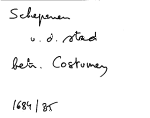 Schepenen
v. d. stad
betr. Costumen
1684/85